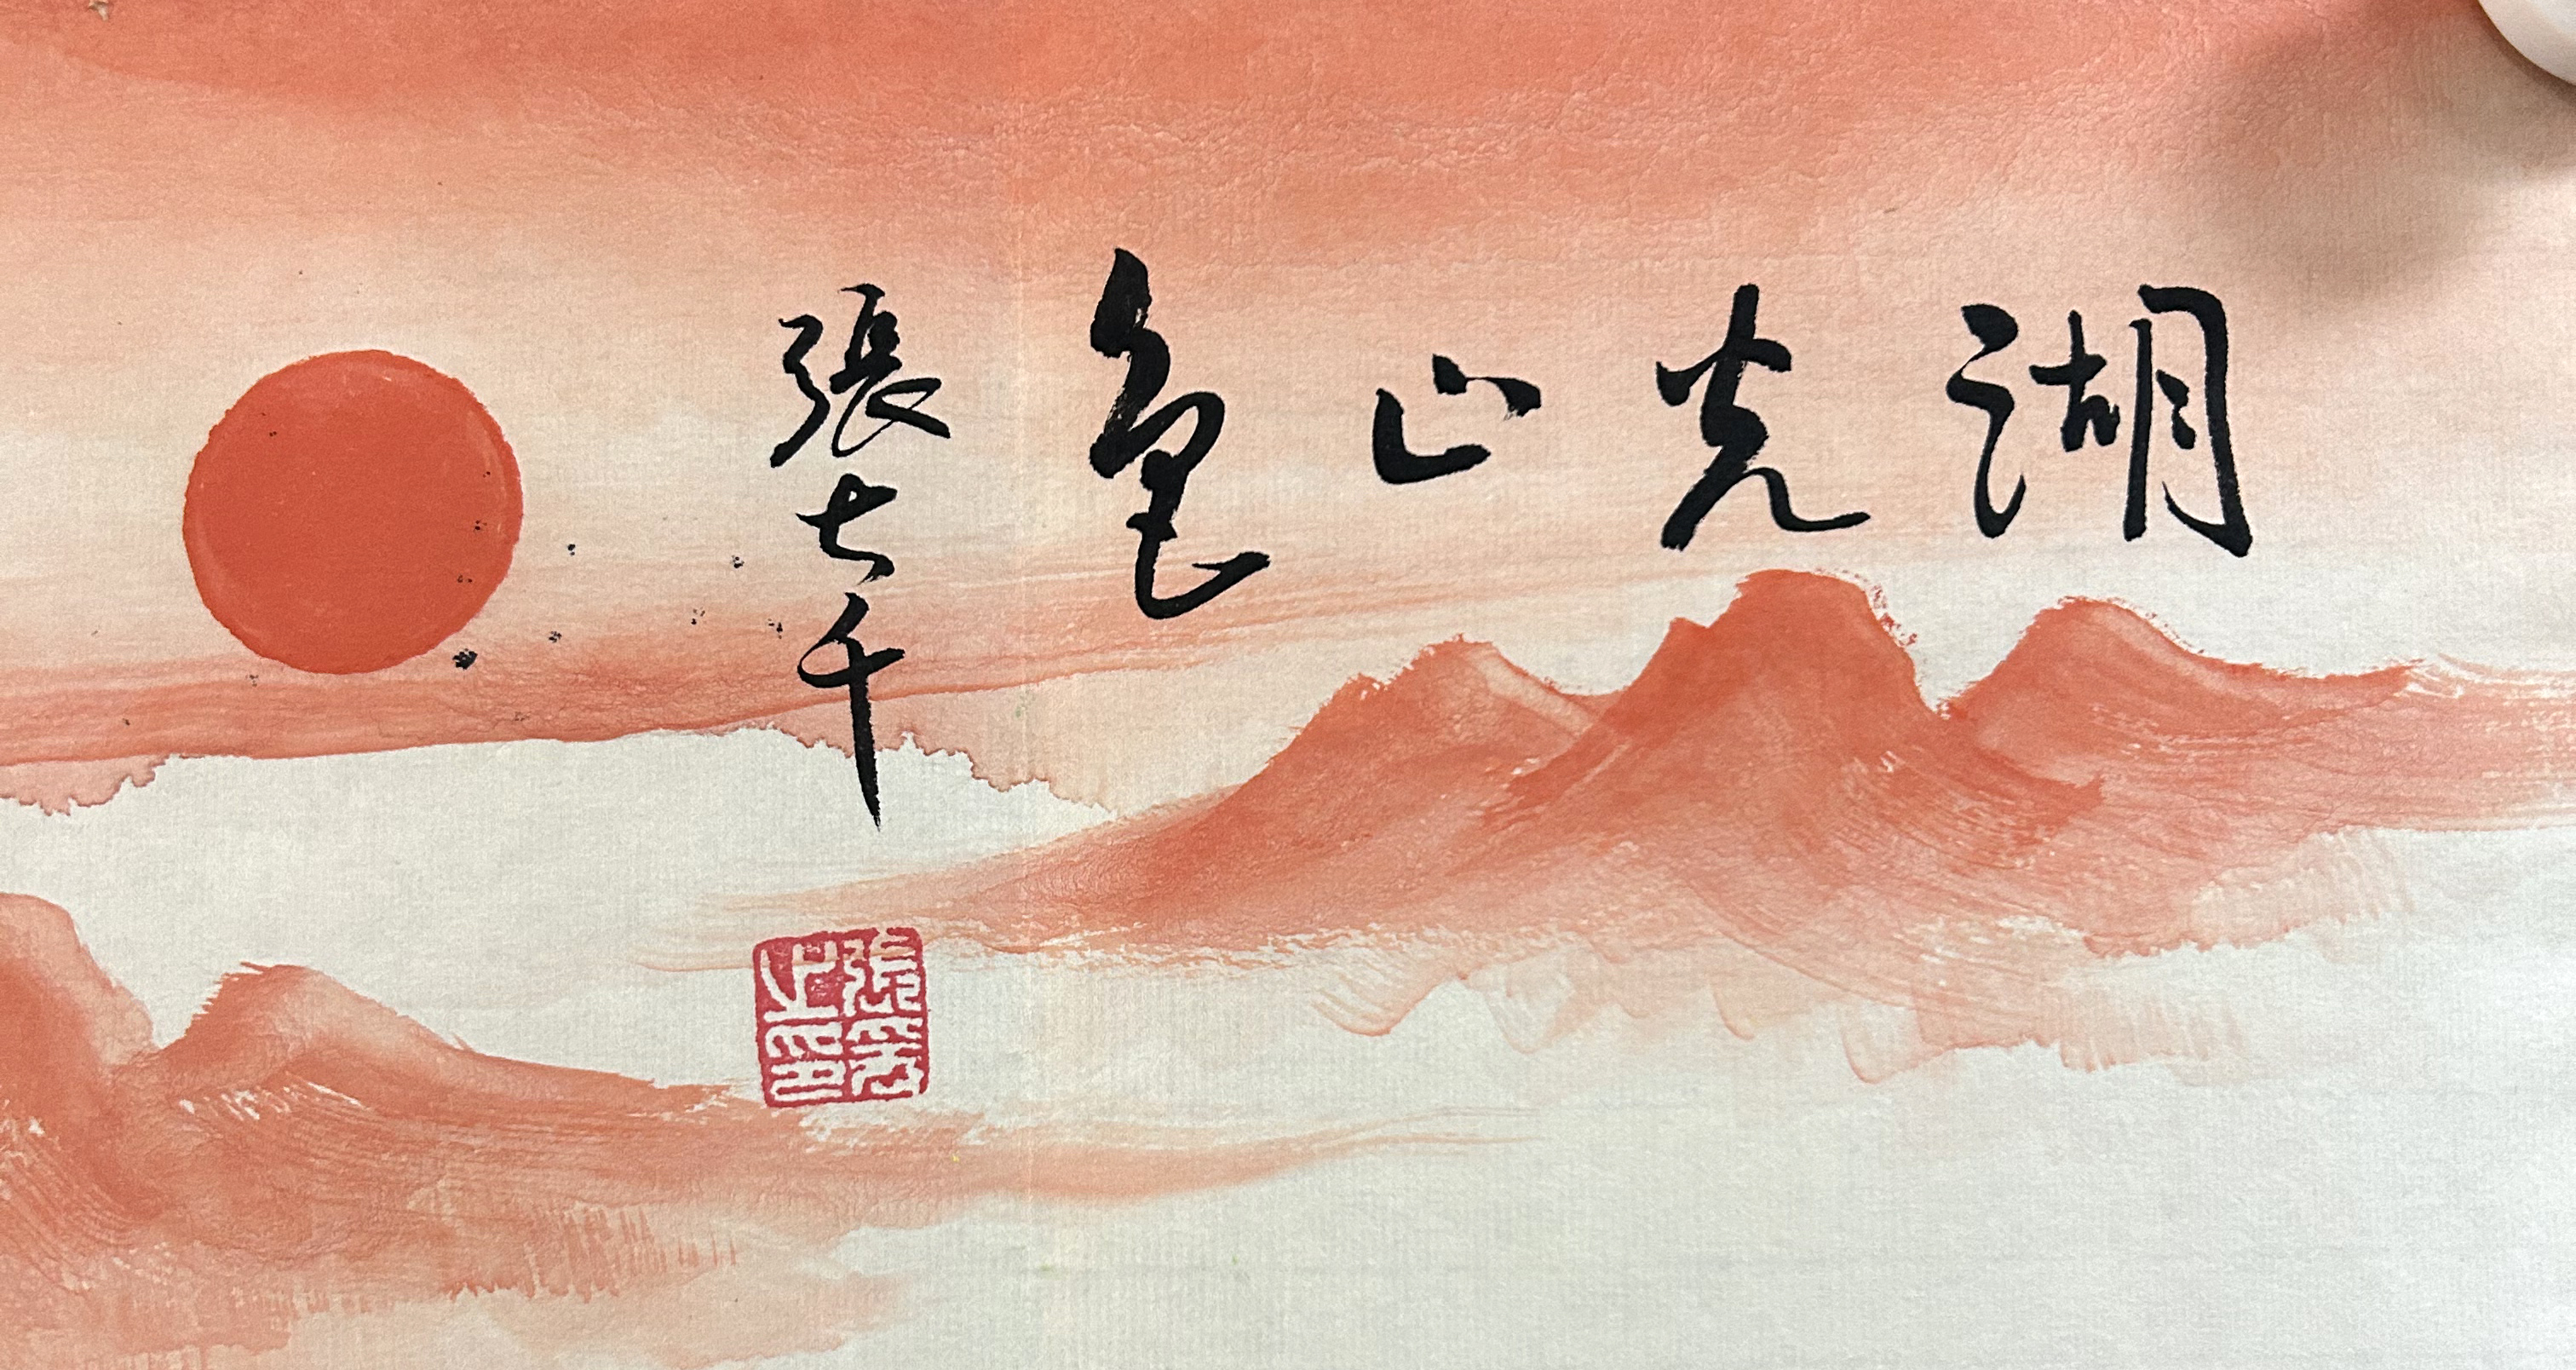 湖光山色
張大千
張爰之印